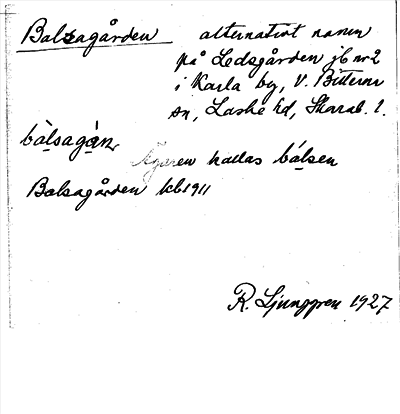 Balsagården
alternativt namn
på Ledsgården jb nr 2
i Karla by, V. Bitterna
sn, Laske hd, Skarab. l.
bà̱lsagá̱ṇ
Ägaren kallas bá̱lsen
Balsagården kb 1911
R. Ljunggren 1927